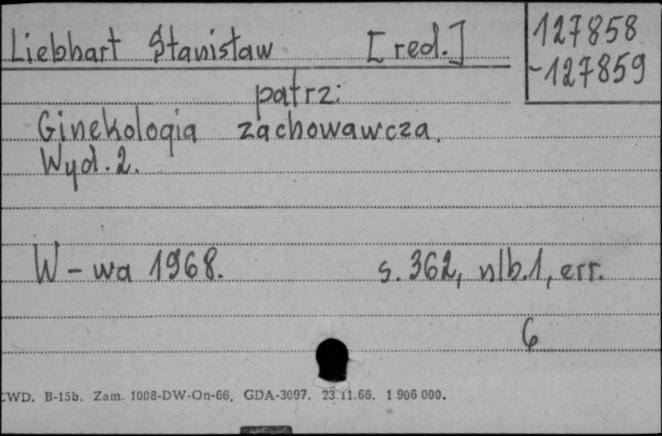 Liebhart Stanisław [red.]
127858
-127859
patrz:
Ginekologia zachowawcza.
Wyd. 2.
W-wa 1968. s. 362, nlb. 1, err.
6
WD. B-15b. Zam. 1008-DW-On-66. GDA-3097. 23.11.66. 1 906 000.